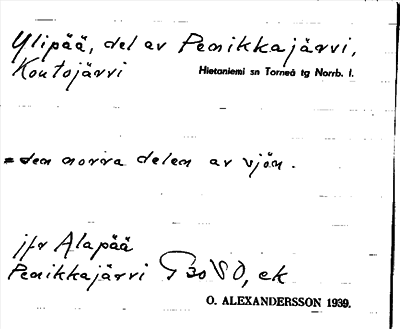 Ylipää, del av Penikkajärvi,
Koutojärvi Hietaniemi sn Torneå tg Norrb. l.
= den norra delen av sjön.
jfr Alapää
Penikkajärvi G 30 V O, ek
O. ALEXANDERSSON 1939.